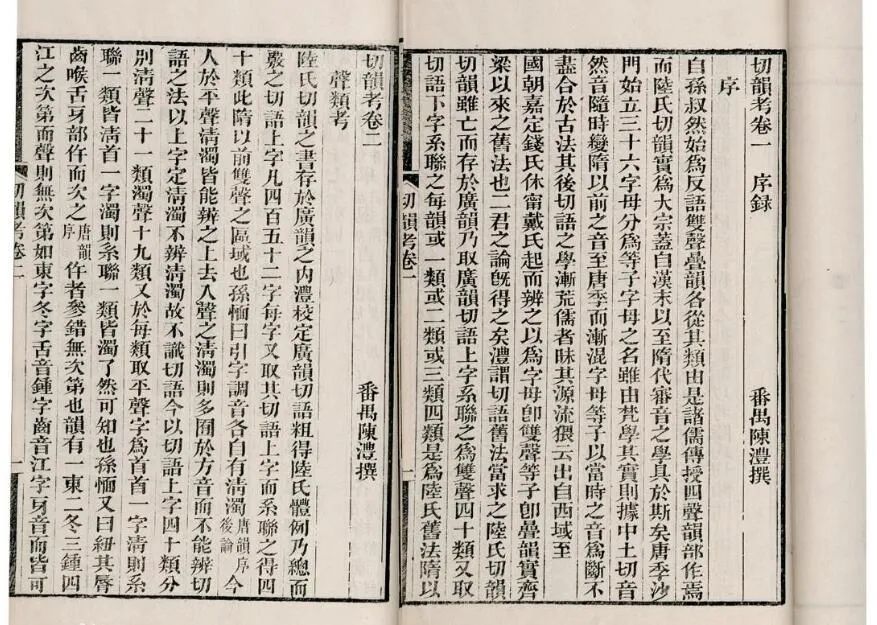 切韻考卷一　序録
番禺陳澧撰
序
自孫叔然始爲反語雙聲疊韻各從其類由是諸儒傳授四聲韻部作焉
而陸氏切韻實爲大宗蓋自漢末以至隋代審音之學具於斯矣唐季沙
門始立三十六字母分爲等子字母之名雖由梵學其實則據中土切音
然音隨時變隋以前之音至唐季而漸混字母等子以當時之音爲斷不
盡合於古法其後切語之學漸荒儒者昧其源流猥云出自西域至
國朝嘉定錢氏休甯戴氏起而辨之以爲字母卽雙聲等子卽疊韻實齊
梁以來之舊法也二君之論旣得之矣澧謂切語舊法當求之陸氏切韻
切韻雖亡而存於廣韻乃取廣韻切語上字系聯之爲雙聲四十類又取
切語下字系聯之每韻或一類或二類或三類四類是爲陸氏舊法隋以
切韻考卷一
一
切韻考卷二
番禺陳澧撰
聲類考
陸氏切韻之書存於廣韻之内澧校定廣韻切語粗得陸氏體例乃總而
覈之切語上字凡四百五十二字每字又取其切語上字而系聯之得四
十類此隋以前雙聲之區域也孫愐曰引字調音各自有清濁唐韻序後論今
人於平聲清濁皆能辨之上去入聲之清濁則多囿於方音而不能辨切
語之法以上字定清濁不辨清濁故不識切語今以切語上字四十類分
別清聲二十一類濁聲十九類又於每類取平聲字爲首首一字清則系
聯一類皆清首一字濁則系聯一類皆濁了然可知也孫愐又曰紐其脣
齒喉舌牙部仵而次之唐韻序仵者參錯無次第也韻有一東二冬三鍾四
江之次第而聲則無次第如東字冬字舌音鍾字齒音江字牙音而皆可
切韻考卷二